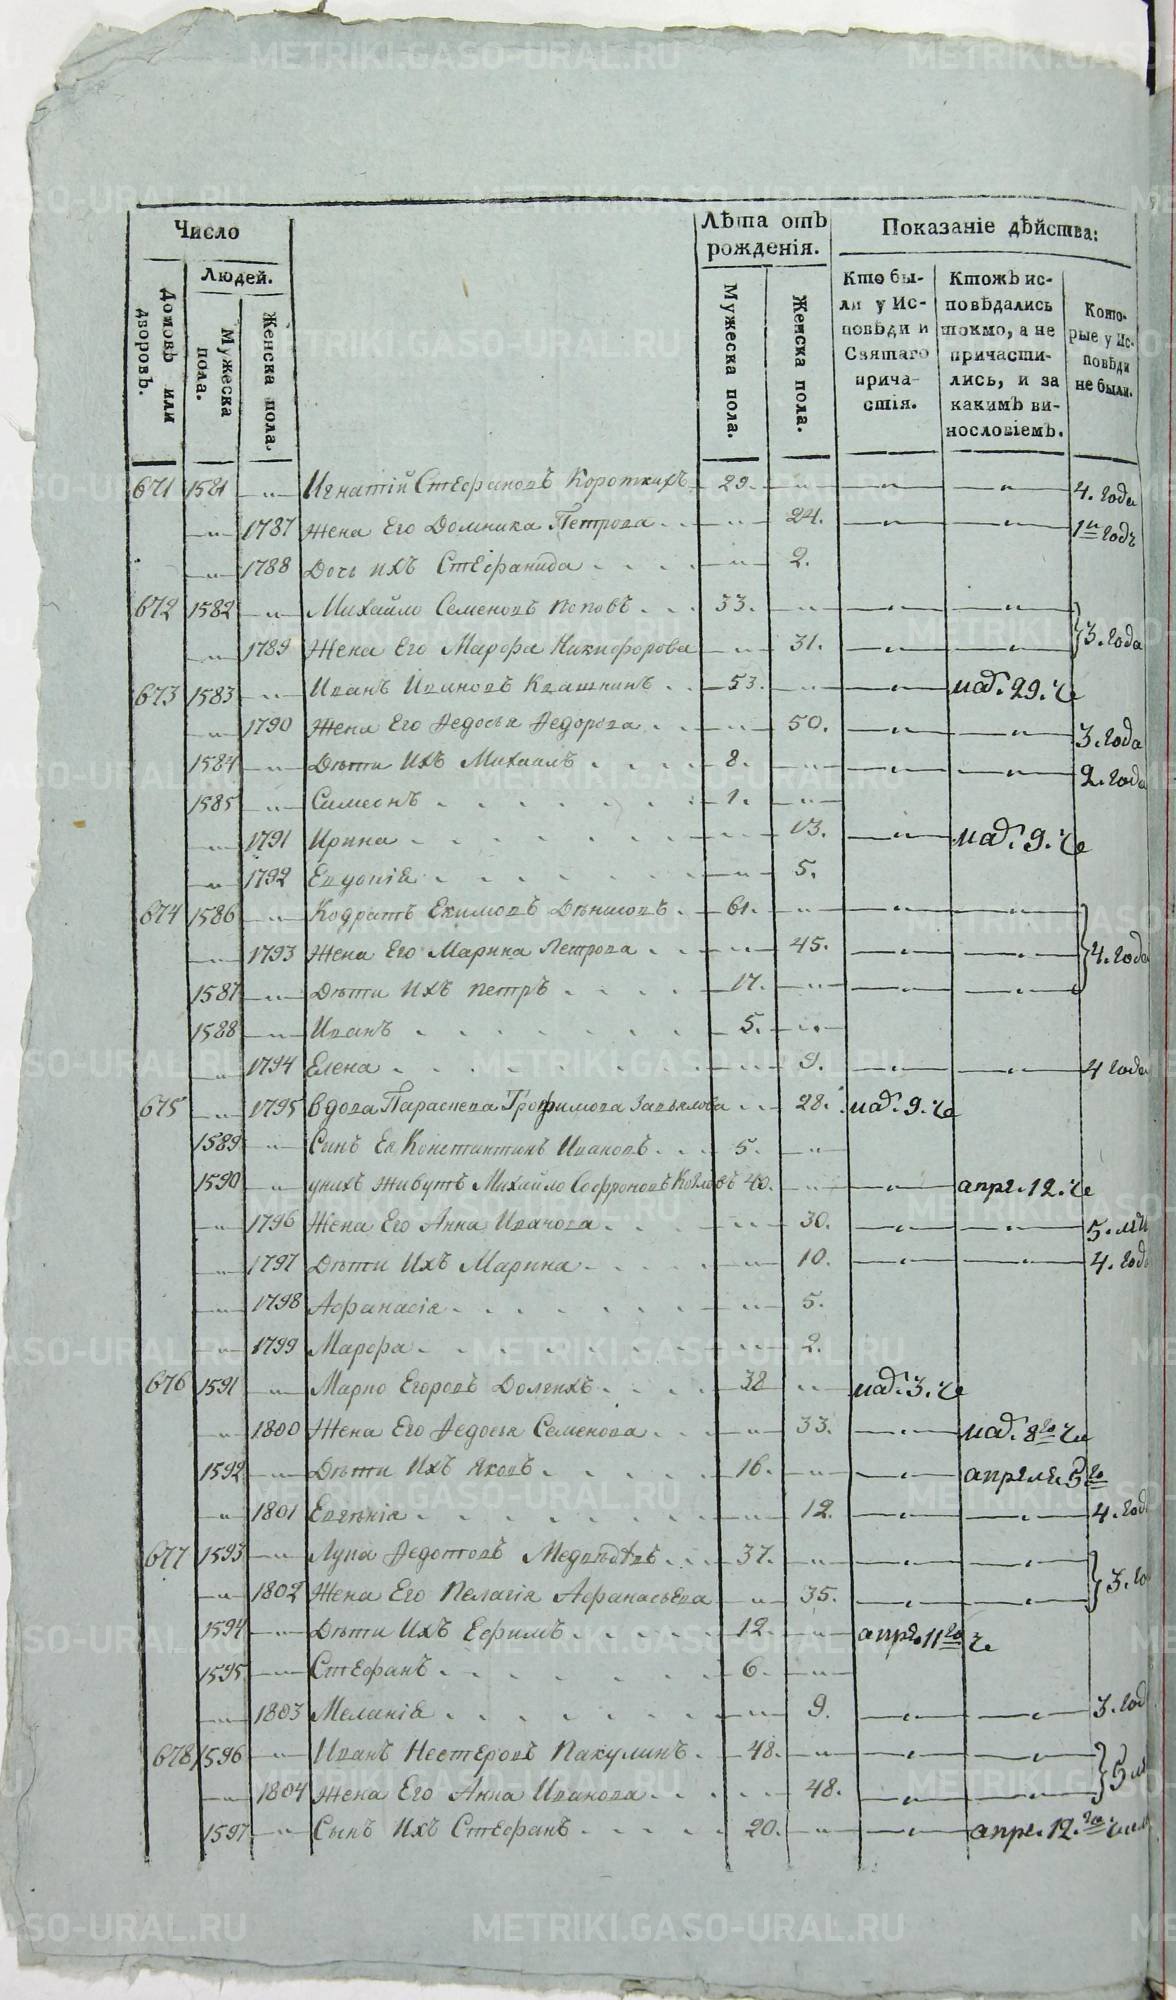 Число
Людей.
Домовъ или дворовъ.
Мужеска пола.
Женска пола.
Лѣта отъ рожденія.
Мужеска пола.
Женска пола.
Показаніе дѣйства:
Кто бы-
ли у Ис-
повѣди и
Святаго
прича-
стія.
Ктожъ ис-
повѣдались
токмо, а не
причасти-
лись, и за
какимъ ви-
нословіемъ.
Кото-
рые у Ис-
повѣди
не были.
671 1581 Игнатій Стефановъ Короткихъ 29. 4. года
1787 Жена Его Домника Петрова 24. 1н годъ
1788 Дочь ихъ Стефанида 2.
672 1582 Михайло Семеновъ Поповъ 33.
1789 Жена Его Марфа Никифорова 31. 3. года
673 1583 Иванъ Ивановъ Квашнинъ 53. маѣ. 29. че
1790 Жена Его Ѳедосья Ѳедорова 50. 3. года
1584 Дѣти Ихъ Михаилъ 8. 2. года
1585 Симеонъ 1.
1791 Ирина 13. маѣ. 9. че
1792 Евдокіѧ 5.
674 1586 Кодратъ Екимовъ Дѣншовъ 61.
1793 Жена Его Марина Петрова 45. 4. года
1587 Дѣти Ихъ Петръ 17.
1588 Иванъ 5.
1794 Елена 9. 4 года
675 1795 Вдова Параскева Трофимова Завьялова 28. маѣ. 9. че
1589 Сынъ Ея Константинъ Ивановъ 5.
1590 у нихъ живутъ Михайло Софроновъ Козловъ 40. апре. 12. че
1796 Жена Его Анна Иванова 30. 5. лѣ
1797 Дѣти Ихъ Марина 10. 4. год
1798 Афанасія 5.
1799 Марфа 2.
676 1591 Марко Егоровъ Долгихъ 38 маѣ. 3. че
1800 Жена Его Ѳедосья Семенова 33. маѣ. 8го че
1592 Дѣти Ихъ Яковъ 16. апреля. 5го
1801 Евгенія 12. 4. год
677 1593 Лука Ѳедотовъ Медвѣдевъ 37.
1802 Жена Его Пелагія Афанасьева 35. 3. го
1594 Дѣти Ихъ Ефимъ 12. апре. 11го че
1595 Стефанъ 6.
1803 Меланіѧ 9. 3. год
678 1596 Иванъ Нестеровъ Пакулинъ 48.
1804 Жена Его Анна Иванова 48. 5 лѣ
1597 Сынъ Ихъ Стефанъ 20. апре. 12. го
METRIKI.GASO-URAL.RU